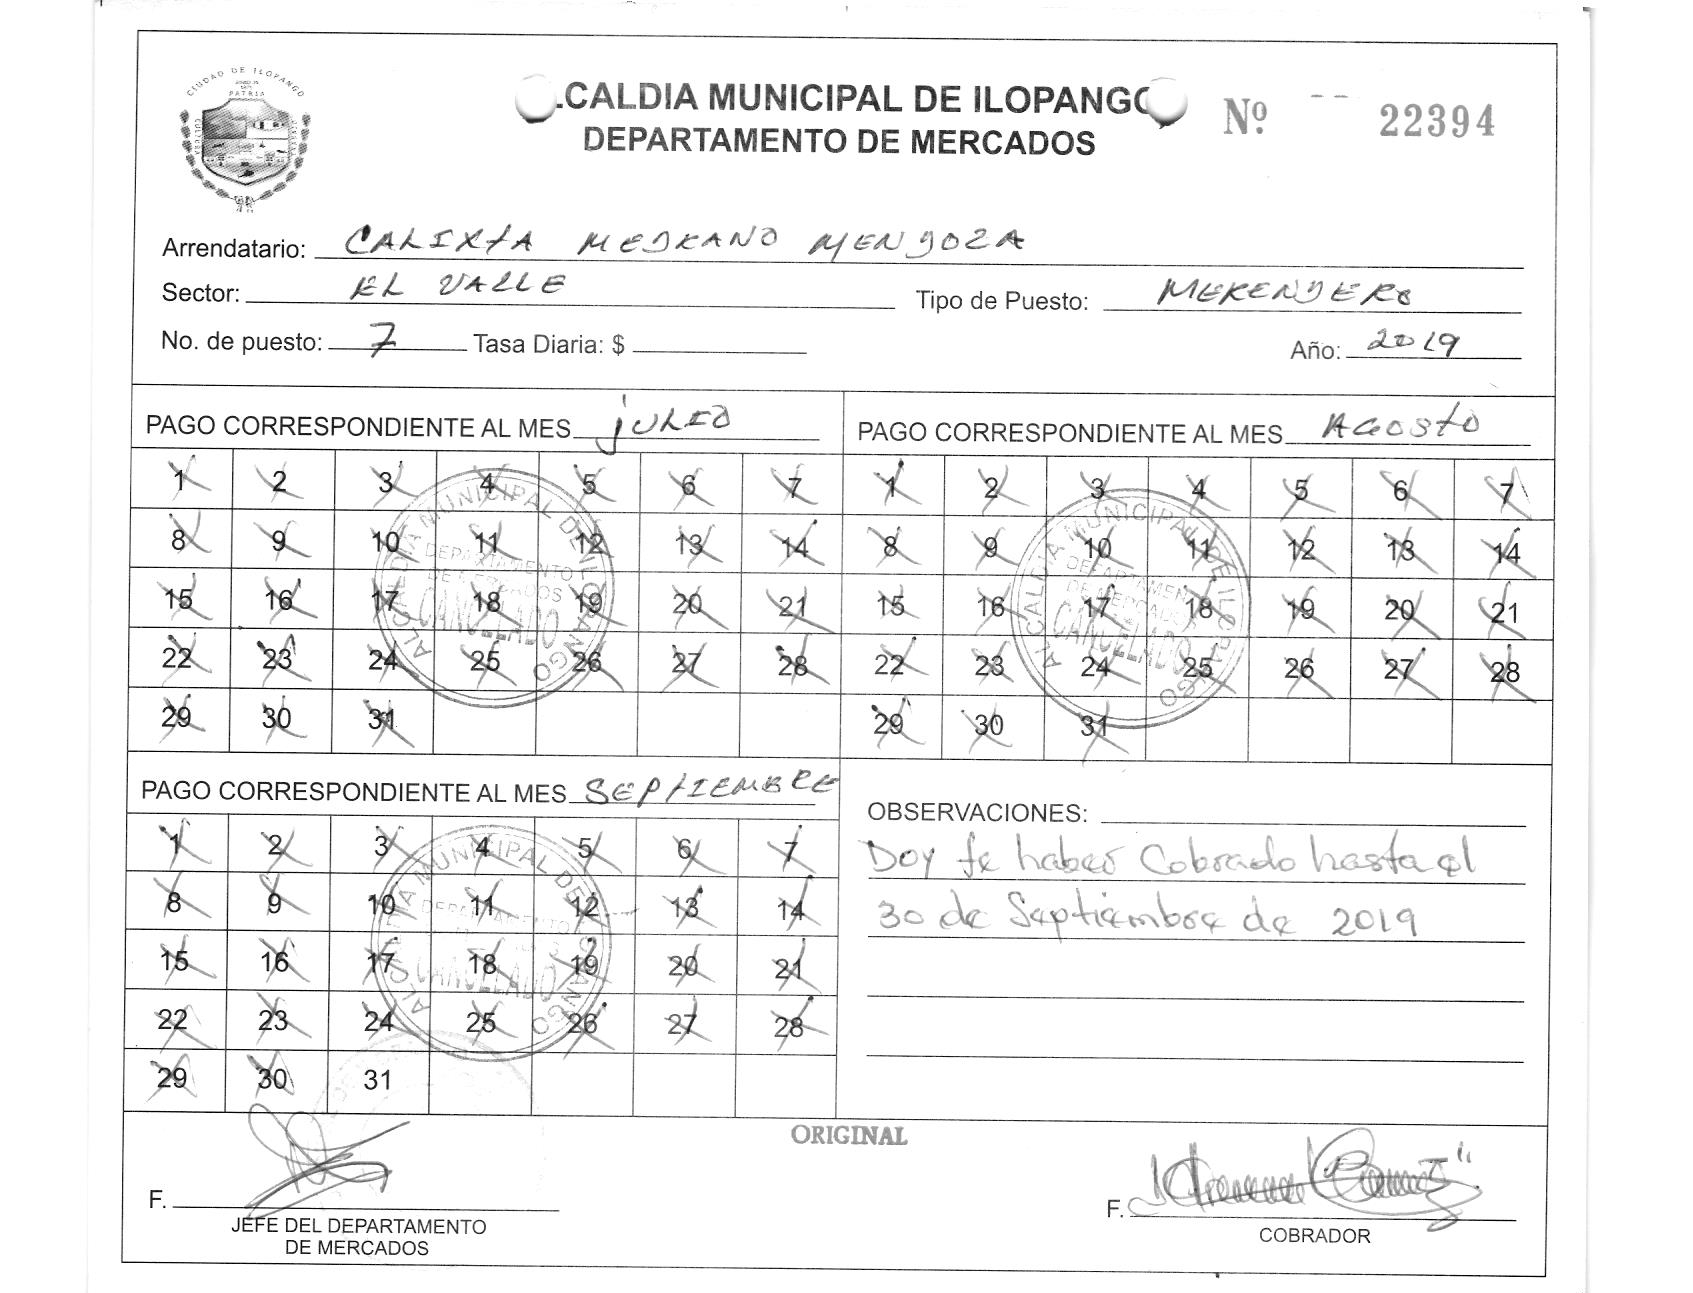 CIUDAD DE ILOPANGO
PATRIA
CULTURA
LCALDIA MUNICIPAL DE ILOPANGO
DEPARTAMENTO DE MERCADOS
Nº 22394
Arrendatario: CALIXTA MEDRANO MENDOZA
Sector: EL VALLE Tipo de Puesto: MERENDERO
No. de puesto: 7 Tasa Diaria: $ Año: 2019
PAGO CORRESPONDIENTE AL MES JULIO
1 2 3 4 5 6 7
8 9 10 11 12 13 14
15 16 17 18 19 20 21
22 23 24 25 26 27 28
29 30 31
ALCALDIA MUNICIPAL DE ILOPANGO
DEPARTAMENTO
DE MERCADOS
CANCELADO
PAGO CORRESPONDIENTE AL MES AGOSTO
1 2 3 4 5 6 7
8 9 10 11 12 13 14
15 16 17 18 19 20 21
22 23 24 25 26 27 28
29 30 31
ALCALDIA MUNICIPAL DE ILOPANGO
DEPARTAMENTO
DE MERCADOS
CANCELADO
PAGO CORRESPONDIENTE AL MES SEPTIEMBRE
1 2 3 4 5 6 7
8 9 10 11 12 13 14
15 16 17 18 19 20 21
22 23 24 25 26 27 28
29 30 31
ALCALDIA MUNICIPAL DE ILOPANGO
DEPARTAMENTO
CANCELADO
OBSERVACIONES:
Doy fe haber Cobrado hasta el
30 de Septiembre de 2019
ORIGINAL
F.
JEFE DEL DEPARTAMENTO
DE MERCADOS
F.
COBRADOR